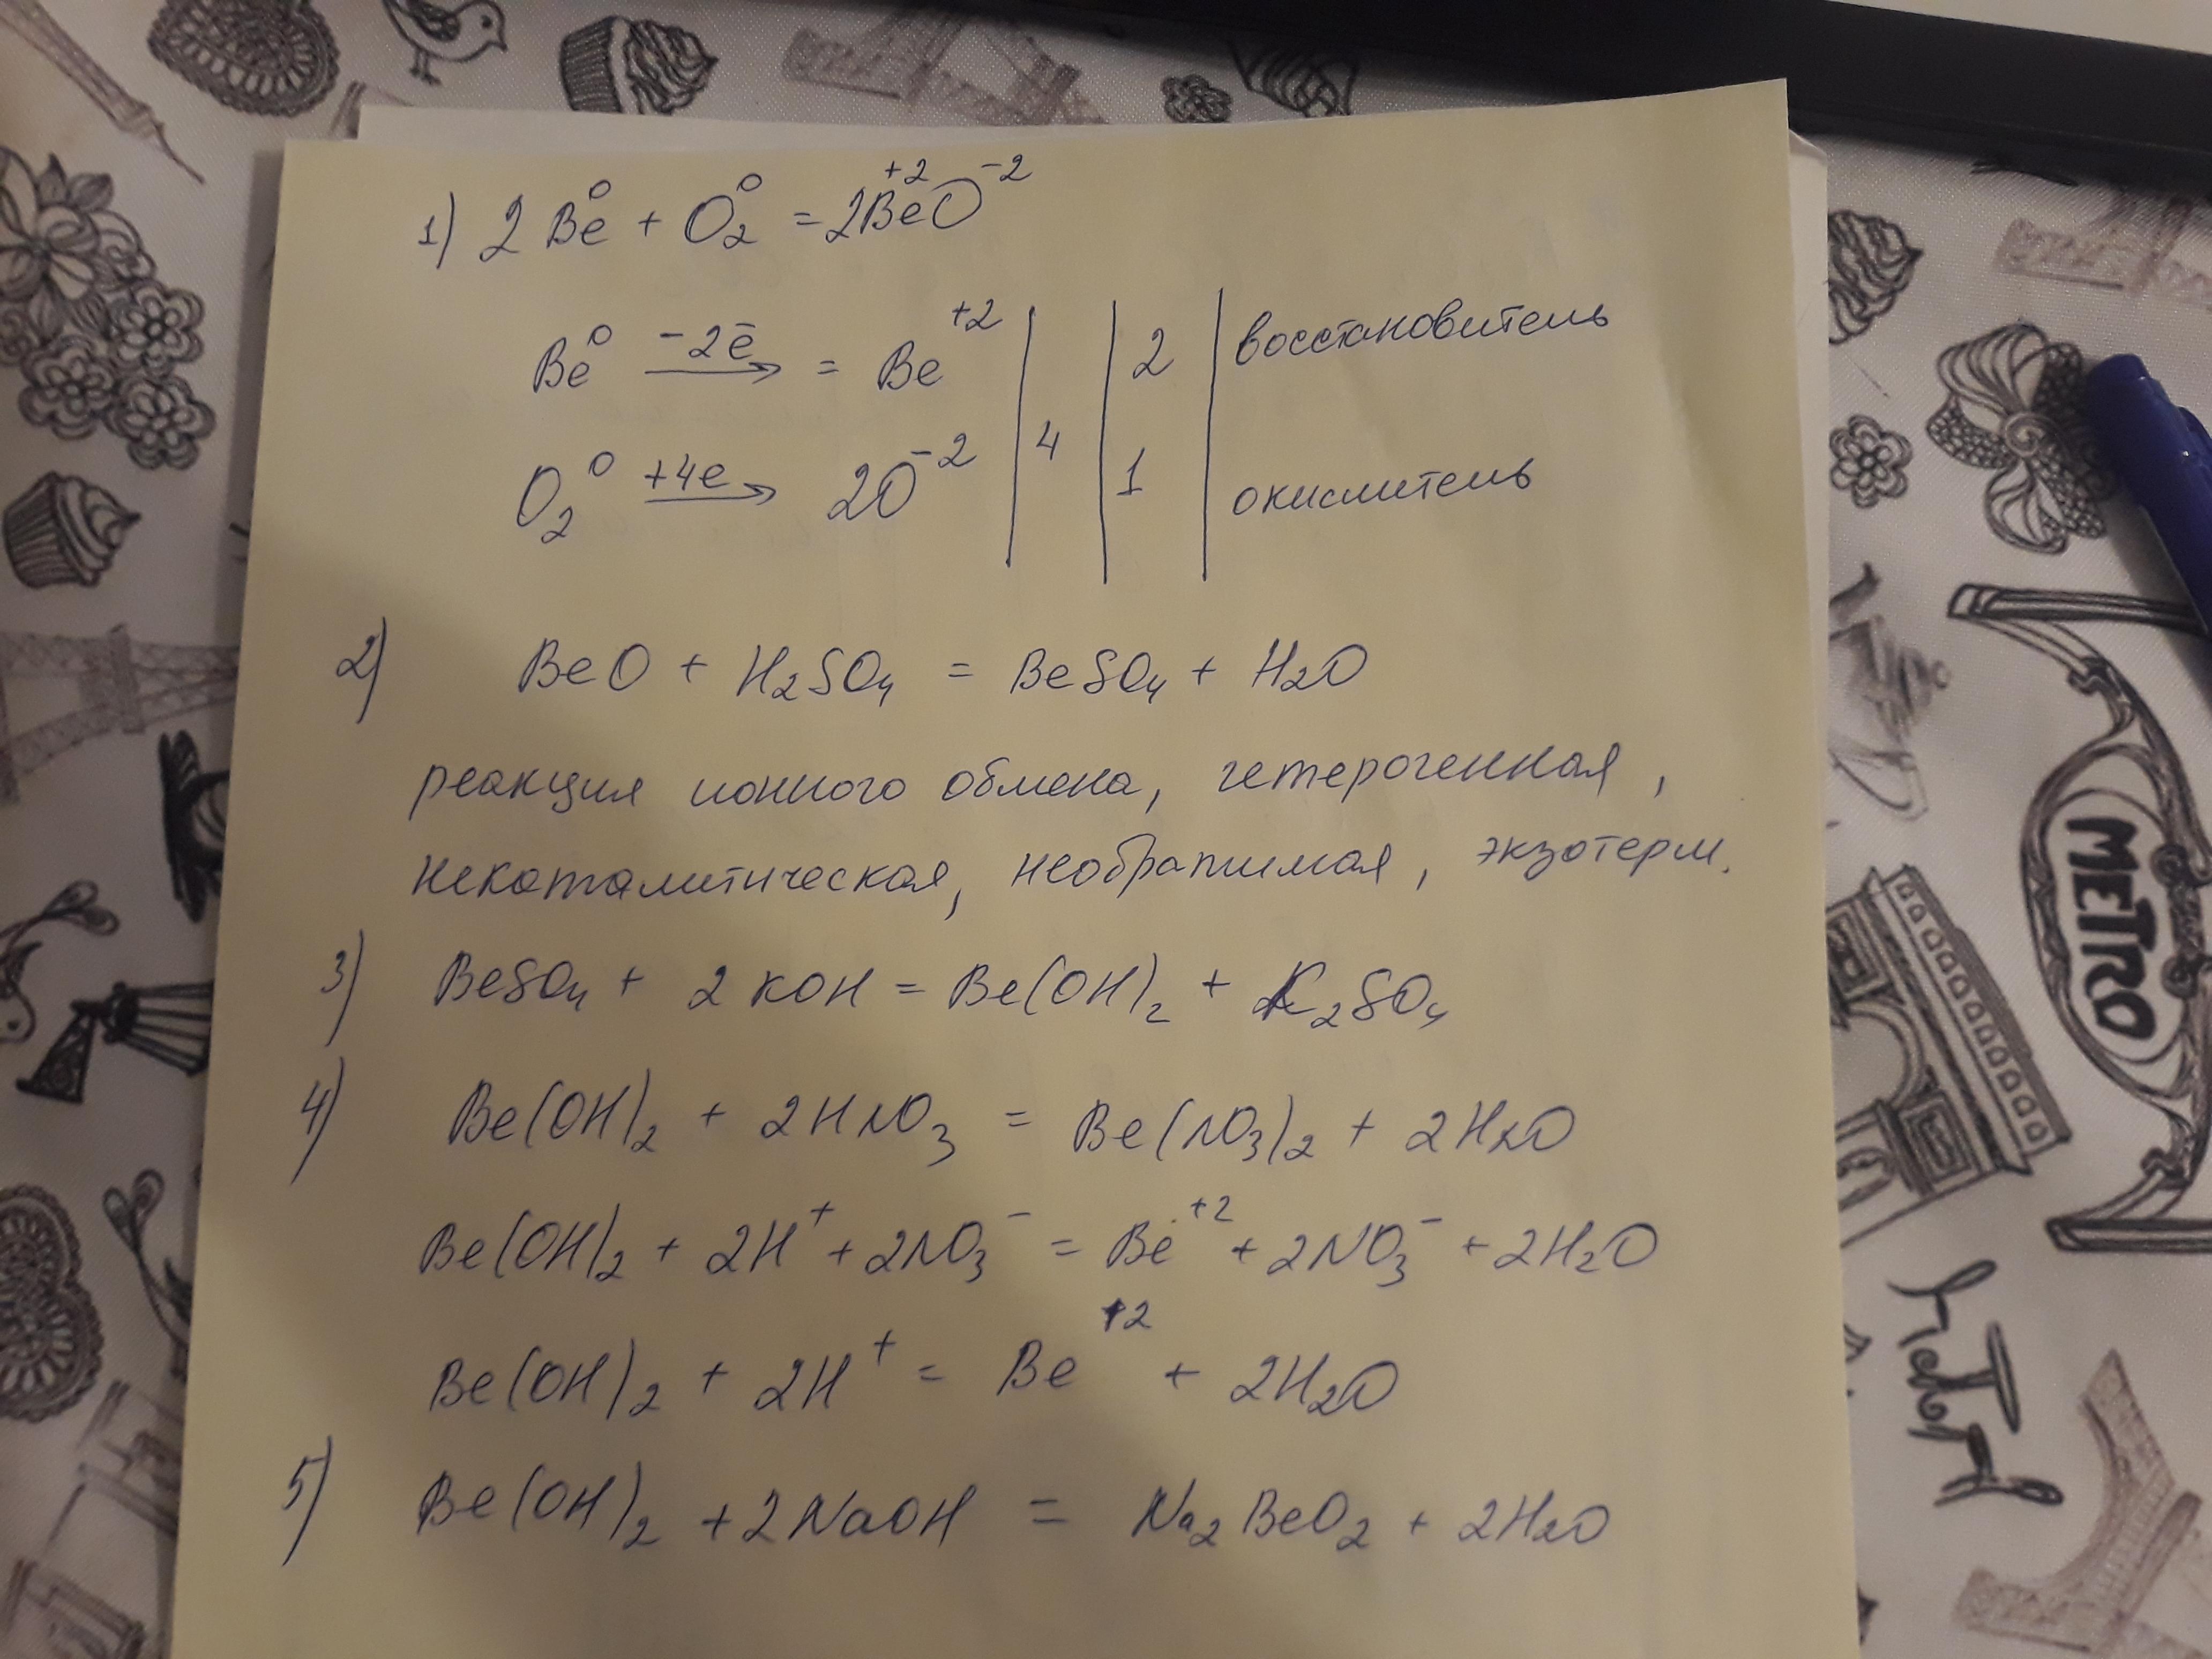 1) 2Be⁰ + O₂⁰ = 2Be⁺²O⁻²
Be⁰ -2ē → = Be⁺² | | 2 | восстановитель
4
O₂⁰ +4e → 2O⁻² | | 1 | окислитель
2) BeO + H₂SO₄ = BeSO₄ + H₂O
реакция ионного обмена, гетерогенная,
некаталитическая, необратимая, экзотерм.
3) BeSO₄ + 2KOH = Be(OH)₂ + K₂SO₄
4) Be(OH)₂ + 2HNO₃ = Be(NO₃)₂ + 2H₂O
Be(OH)₂ + 2H⁺ + 2NO₃⁻ = Be⁺² + 2NO₃⁻ + 2H₂O
Be(OH)₂ + 2H⁺ = Be⁺² + 2H₂O
5) Be(OH)₂ + 2NaOH = Na₂BeO₂ + 2H₂O
METRO